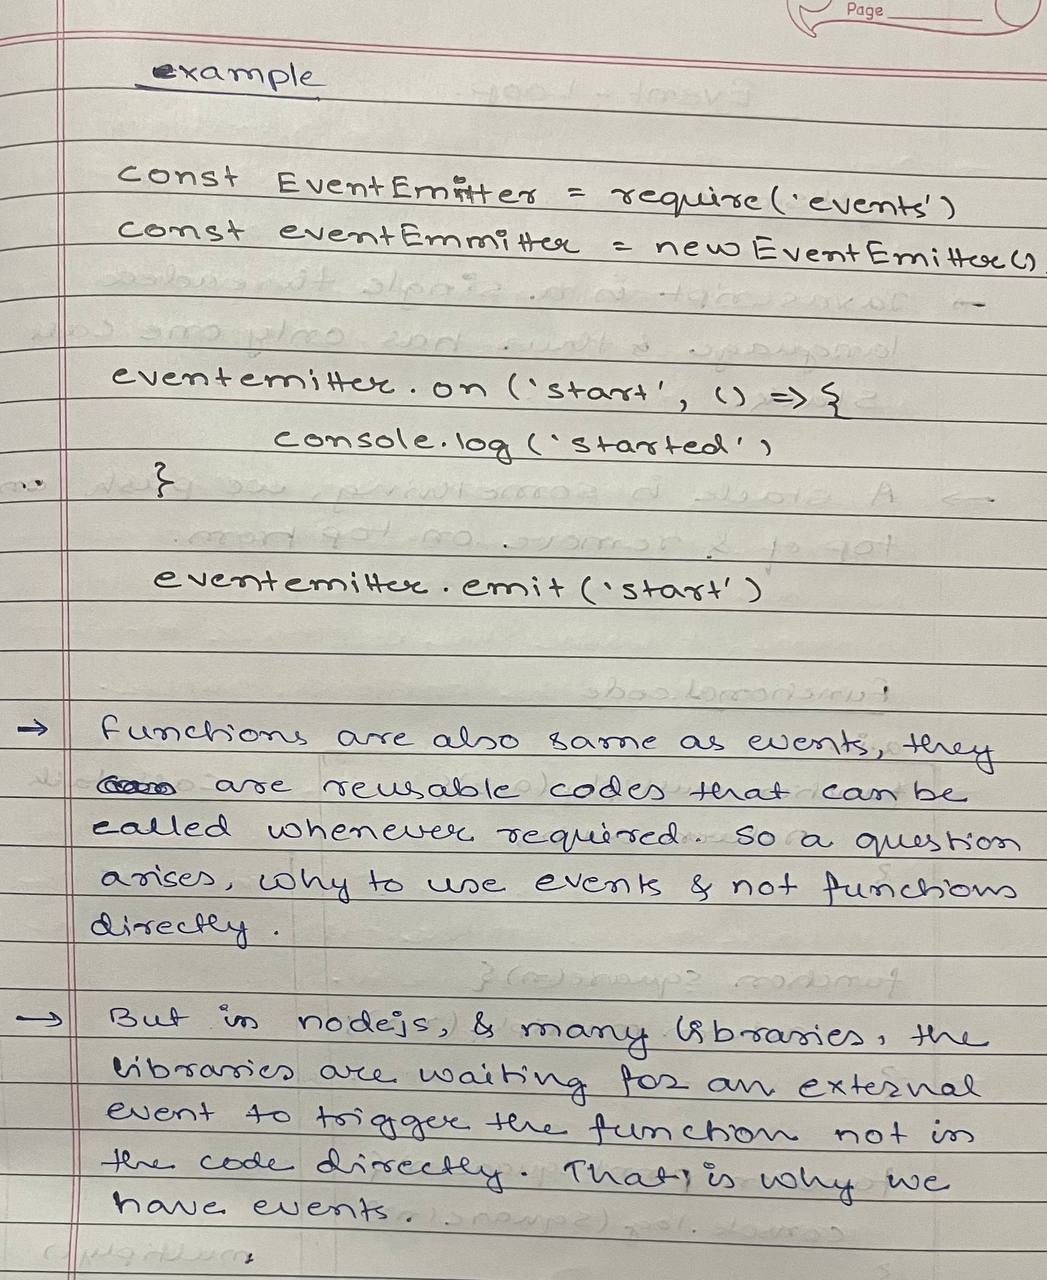 Page
example
const EventEmitter = require('events')
const eventEmmitter = new EventEmitter()
eventemitter.on('start', () => {
console.log('started')
}
eventemitter.emit('start')
→ functions are also same as events, they
are reusable codes that can be
called whenever required. So a question
arises, why to use events & not functions
directly.
→ But in nodejs, & many libraries, the
libraries are waiting for an external
event to trigger the function not in
the code directly. That is why we
have events.